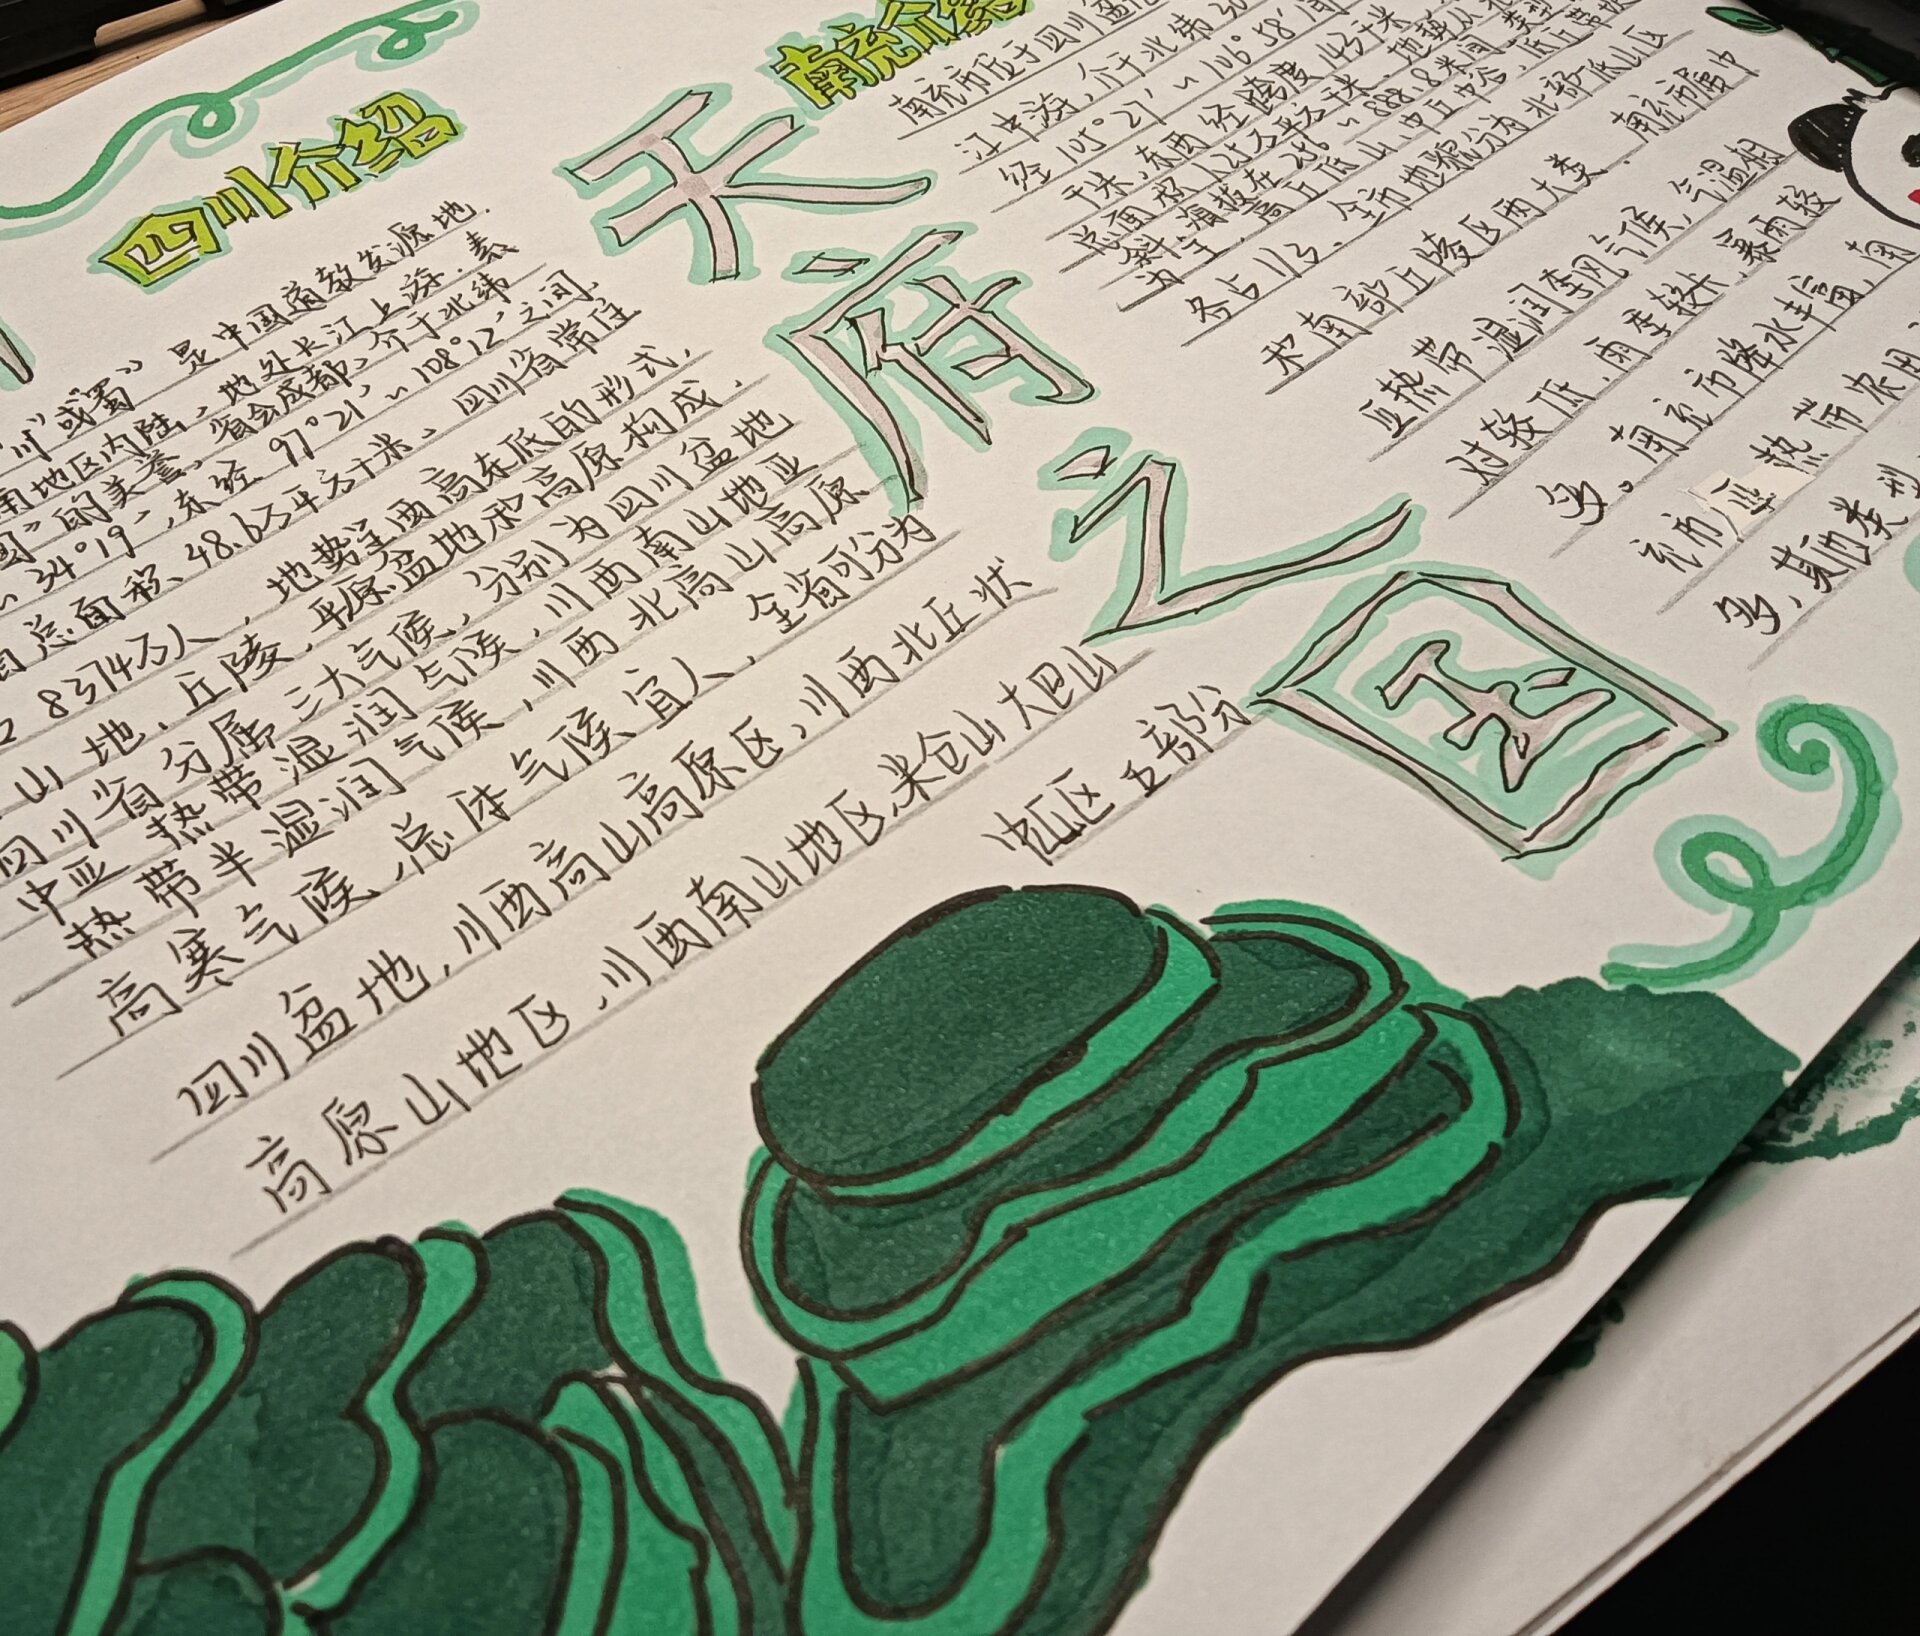 四川介绍
川"或"蜀" 是中国道教发源地.
南地区内陆、地处长江上游.素
国"的美誉、省会成都、介于北纬
34°19′,东经 97°21′~108°12′之间.
总面积48.6万平方千米、四川省常住
8374万人,地势呈西高东低的形式,
山地、丘陵,平原盆地和高原构成,
四川省分属三大气候,分别为四川盆地
中亚热带湿润气候,川西南山地亚
热带半湿润气候,川西北高山高原
高寒气候,总体气候宜人,全省可分为
四川盆地,川西高山高原区,川西北丘状
高原山地区,川西南山地区,米仓山大巴山
区五部分
天府之国
南充介绍
南充市位于四川盆
江中游,介于北纬30
经105°27′~106°58′间
千米,东西经跨度143千米
总面积1.25万平方千米,地势从北
斜、海拔在256~888.8米间 类型
为主,高丘低山中丘中谷,低丘带坝
各占1/3、全市地貌分为北部低山区
和南部丘陵区两大类.南充市属中
亚热带湿润季风气候,气温相
对较低,雨季较长,暴雨较
多。南充市降水丰富,南
充市亚热带农
多,植物类